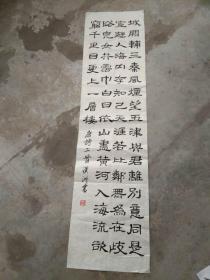 城闕輔三秦風煙望五津與君離別意同是
宦遊人海內存知己天涯若比鄰無為在歧
路兒女共霑巾白日依山盡黃河入海流欲
窮千里目更上一層樓 唐詩二首 書